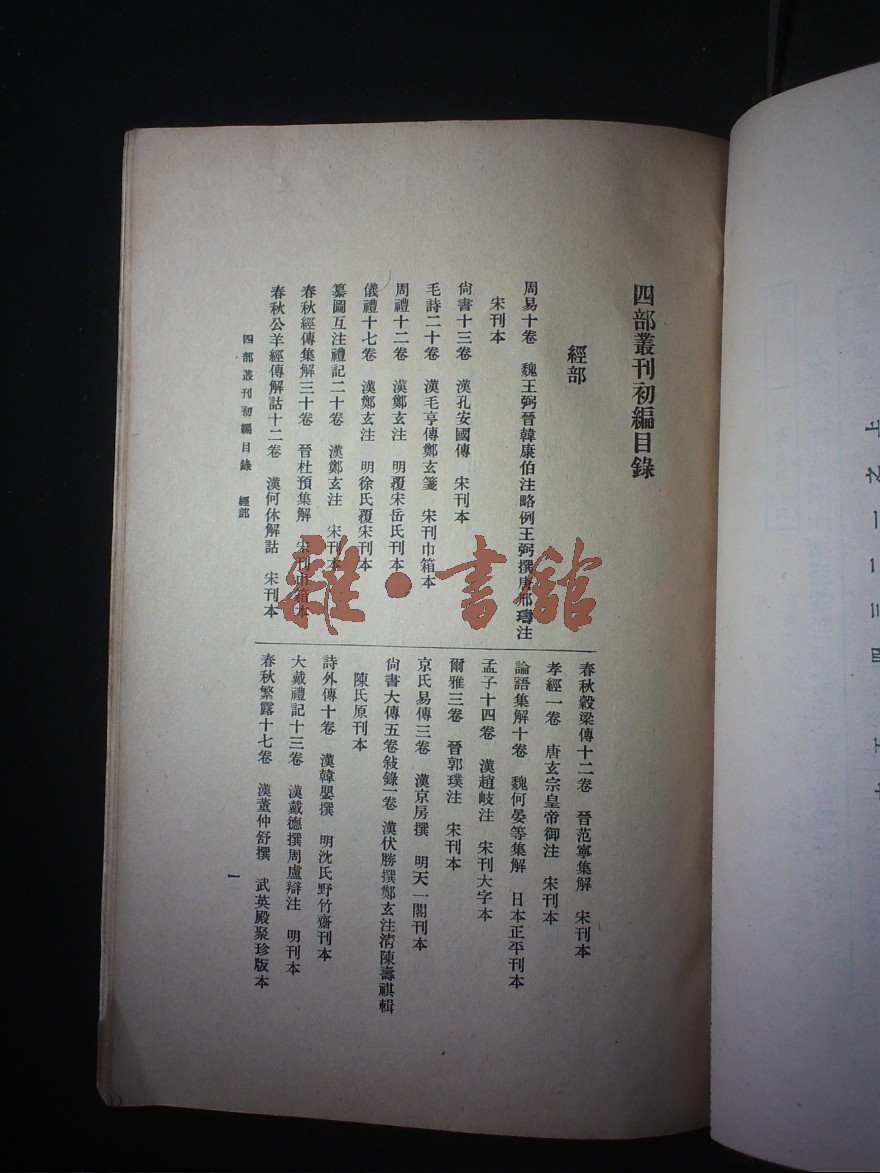 四部叢刊初編目錄
經部
周易十卷　魏王弼晉韓康伯注略例王弼撰唐邢璹注
宋刊本
尙書十三卷　漢孔安國傳　宋刊本
毛詩二十卷　漢毛亨傳鄭玄箋　宋刊巾箱本
周禮十二卷　漢鄭玄注　明覆宋岳氏刊本
儀禮十七卷　漢鄭玄注　明徐氏覆宋刊本
纂圖互注禮記二十卷　漢鄭玄注　宋刊本
春秋經傳集解三十卷　晉杜預集解　宋刊巾箱本
春秋公羊經傳解詁十二卷　漢何休解詁　宋刊本
春秋穀梁傳十二卷　晉范寧集解　宋刊本
孝經一卷　唐玄宗皇帝御注　宋刊本
論語集解十卷　魏何晏等集解　日本正平刊本
孟子十四卷　漢趙岐注　宋刊大字本
爾雅三卷　晉郭璞注　宋刊本
京氏易傳三卷　漢京房撰　明天一閣刊本
尙書大傳五卷敍錄一卷　漢伏勝撰鄭玄注淸陳壽祺輯
陳氏原刊本
詩外傳十卷　漢韓嬰撰　明沈氏野竹齋刊本
大戴禮記十三卷　漢戴德撰周盧辯注　明刊本
春秋繁露十七卷　漢董仲舒撰　武英殿聚珍版本
四部叢刊初編目錄　經部
一
雜·書館